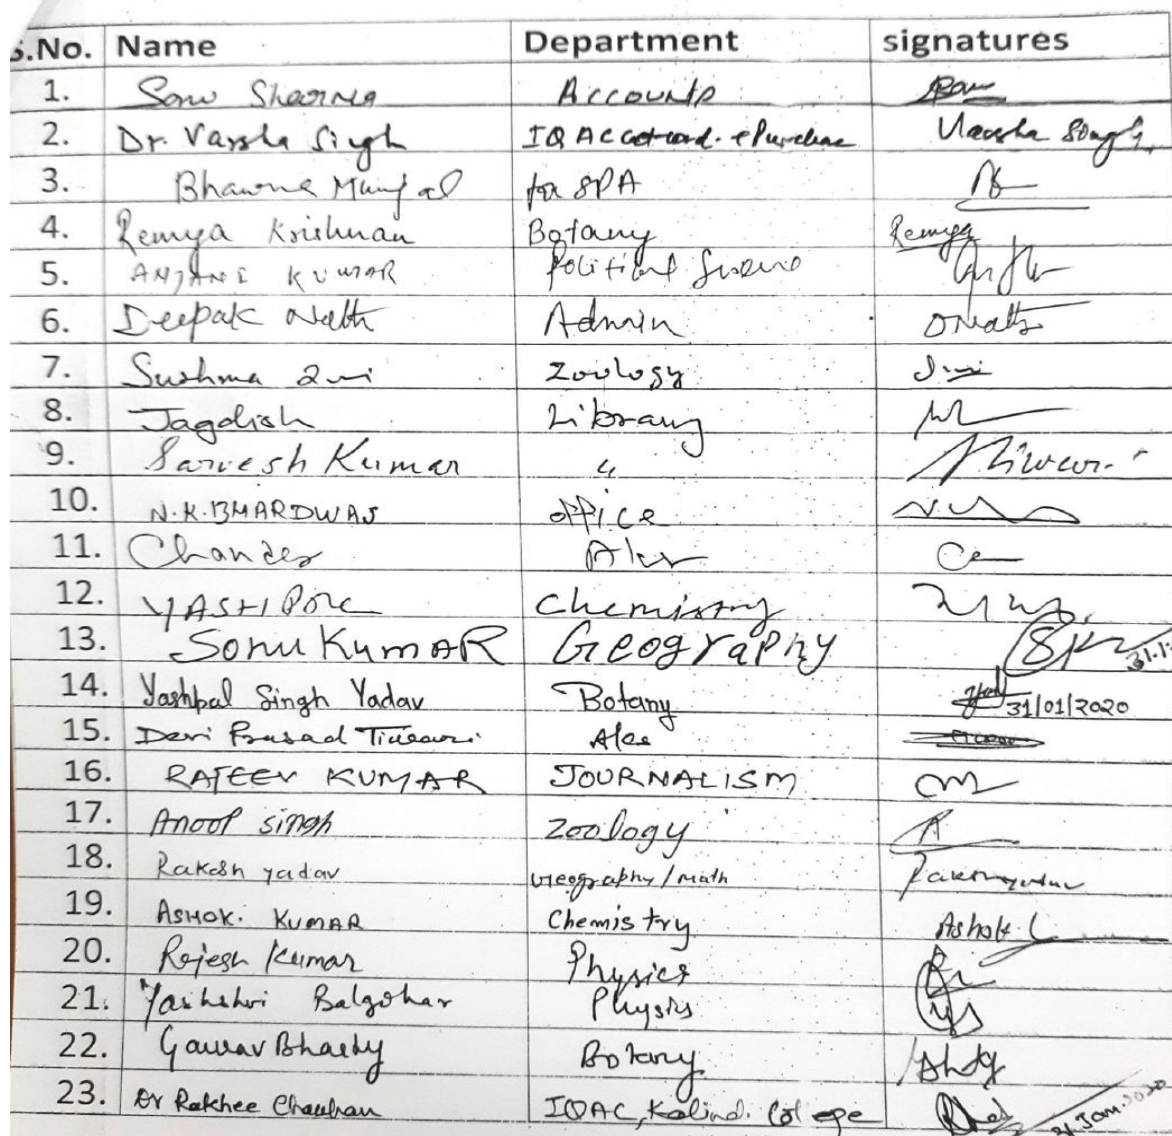 S.No. Name Department signatures
1. Sonu Sharma Accounts
2. Dr. Varsha Singh IQAC Purchase Varsha Singh
3. Bhawna Munjal for SPA
4. Remya Krishnan Botany Remya
5. ANJANI KUMAR Political Science
6. Deepak Nath Admin DNath
7. Sushma Zoology
8. Jagdish Library
9. Sarvesh Kumar "
10. N.K.BHARDWAJ office
11. Chander
12. YASHPOLE Chemistry
13. Sonu KumAR Geography 31.1
14. Yashpal Singh Yadav Botany 31/01/2020
15. Devi Prasad Tiwari
16. RAJEEV KUMAR JOURNALISM
17. Anoop singh Zoology
18. Rakesh yadav Geography/math
19. ASHOK. KUMAR Chemistry Ashok
20. Rajesh Kumar Physics
21. Balgohar Physis
22. Gaurav Botany
23. Dr Rakhee Chauhan IQAC, Kalindi College 31.Jan.2020